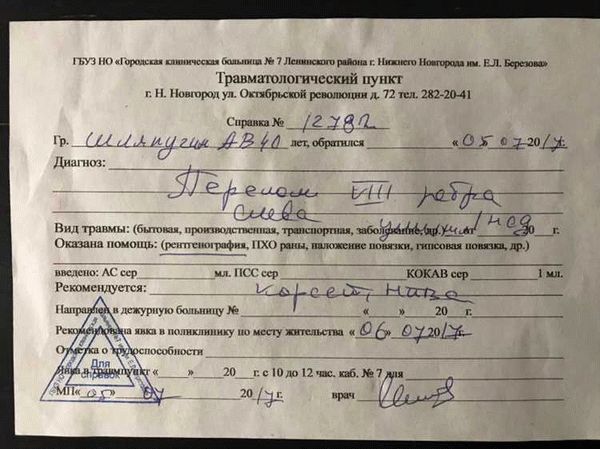 ГБУЗ НО «Городская клиническая больница № 7 Ленинского района г. Нижнего Новгорода им. Е.Л. Березова»
Травматологический пункт
г. Н. Новгород ул. Октябрьской революции д. 72 тел. 282-20-41
Справка № 12782
Гр. Шляпугин АВ 40 лет, обратился «05 07 2017г.
Диагноз:
Перелом VIII ребра
слева
Вид травмы: (бытовая, производственная, транспортная, заболевание, др.) 20 г.
Оказана помощь: (рентгенография, ПХО раны, наложение повязки, гипсовая повязка, др.)
введено: АС сер мл. ПСС сер КОКАВ сер 1 мл.
Рекомендуется: корсет,
Направлен в дежурную больницу № « » 20 г.
Рекомендована явка в поликлинику по месту жительства «06» 07 2017г.
Отметка о трудоспособности
Явка в травмпункт « » 20 г. с 10 до 12 час. каб. № 7 для
МП «05» 07 2017г. врач
Для
справок